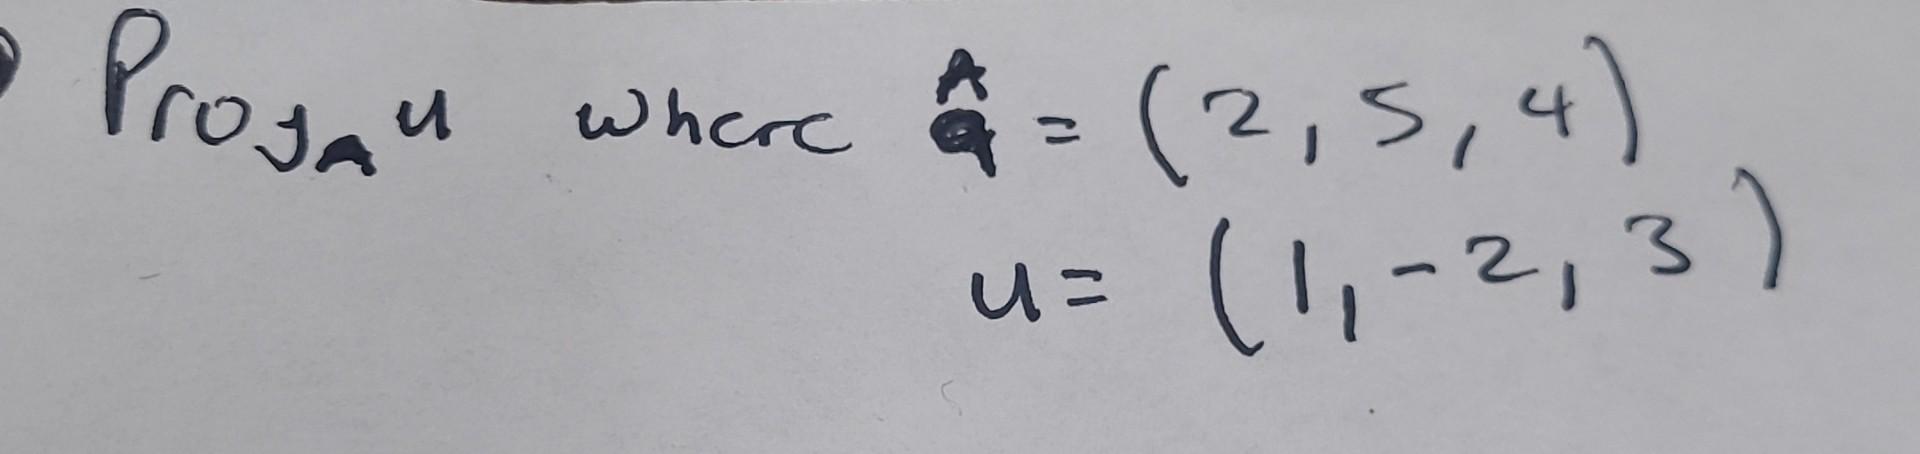 Proj_A u where A = (2, 5, 4)
u = (1, -2, 3)